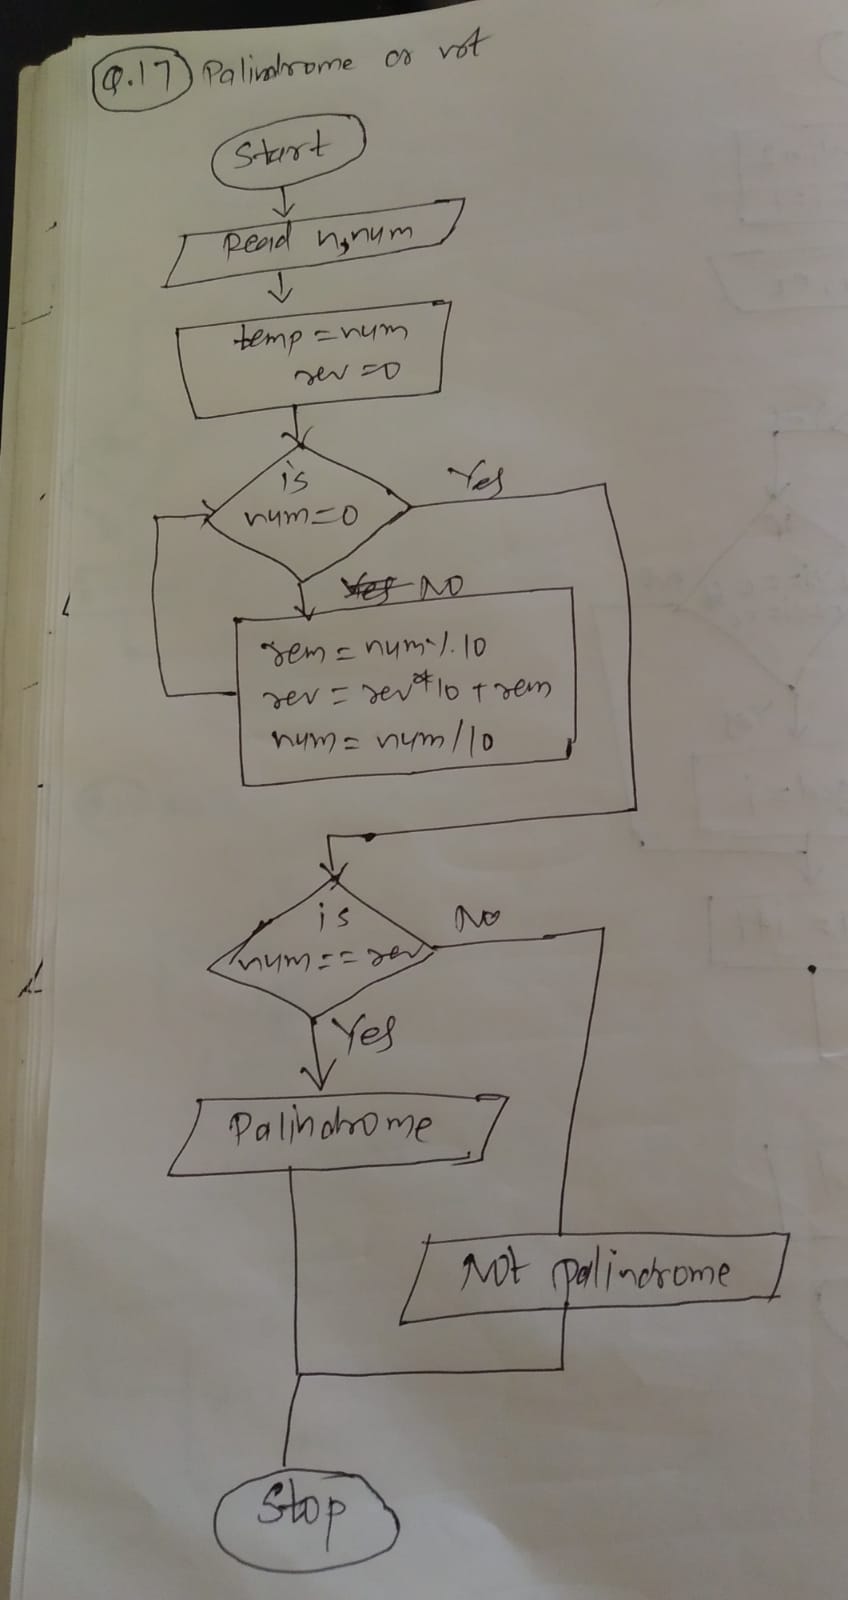 Q.17 Palindrome or not
Start
Read n,num
temp = num
rev = 0
is
num=0
Yes
Yes NO
rem = num % 10
rev = rev*10 + rem
num = num/10
is
num == rev
No
Yes
Palindrome
Not palindrome
Stop